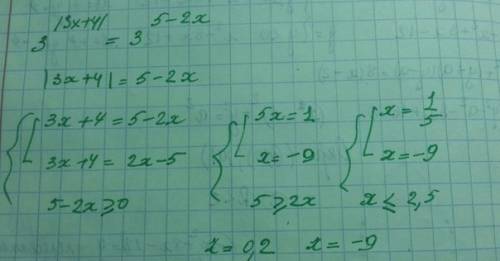 3^{|3x+4|} = 3^{5-2x}
|3x+4| = 5-2x
{ [ 3x+4 = 5-2x
3x+4 = 2x-5
5-2x ≥ 0
{ [ 5x = 1
x = -9
5 ≥ 2x
{ [ x = 1/5
x = -9
x ≤ 2,5
x = 0,2 x = -9